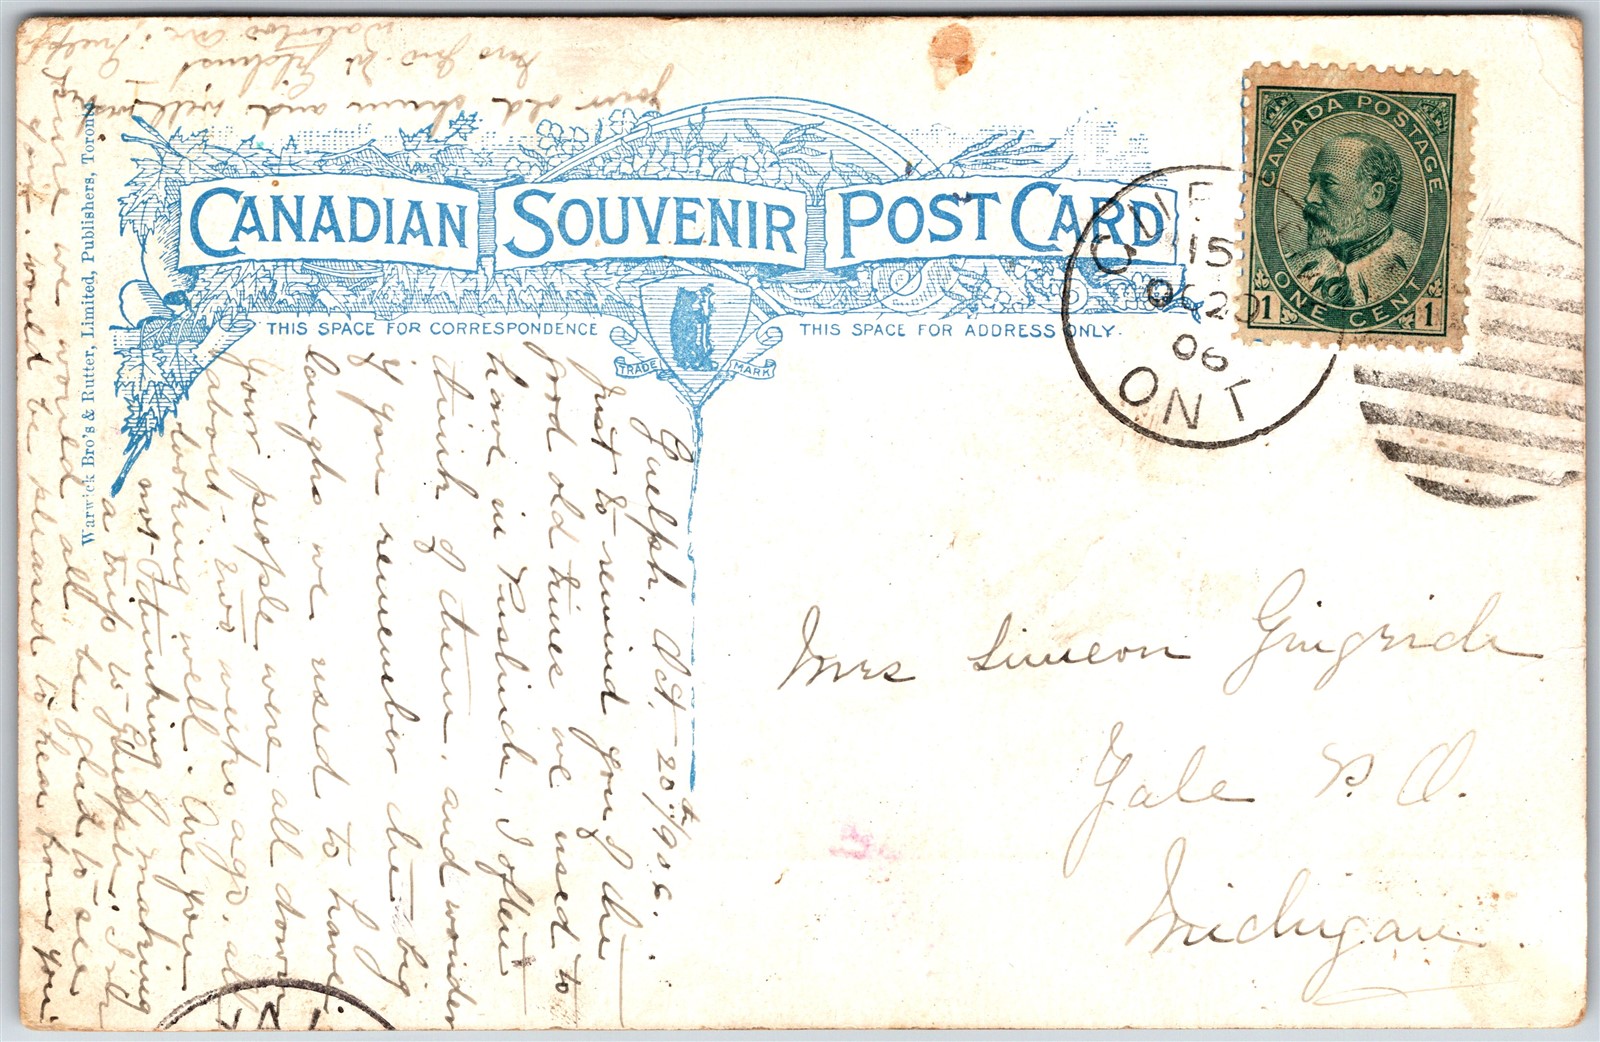 CANADIAN SOUVENIR POST CARD
THIS SPACE FOR CORRESPONDENCE
THIS SPACE FOR ADDRESS ONLY.
TRADE MARK
Warwick Bro's & Rutter, Limited, Publishers, Toronto
CANADA POSTAGE
ONE CENT
1 1
GUE
15
OC 20
06
ONT
Mrs Simeon Gingrich
Yale P. O.
Michigan.
Guelph, Oct 20th/1906.
Just to remind you of the
good old times we used to
have in Puslinch, I often
think of them, and wonder
if you remember the big
laughs we used to have
your people were all down
about two weeks ago, all
looking well. Are you
not thinking of making
a trip to Guelph. I am
sure we would all be glad to see
you. would be pleased to hear from you
your old chum and
Mrs Geo. W.
Waterloo Ave. Guelph